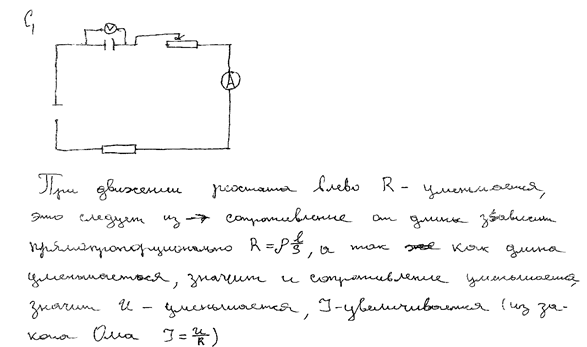 C₁
V
A
При движении реостата влево R - уменьшается,
это следует из → сопротивление от длины зависит
прямопропорционально R = ρ l/S, а так как длина
уменьшаеться, значит и сопротивление уменьшается,
значит U - уменьшается, I - увеличивается (из за-
кона Ома I = U/R)